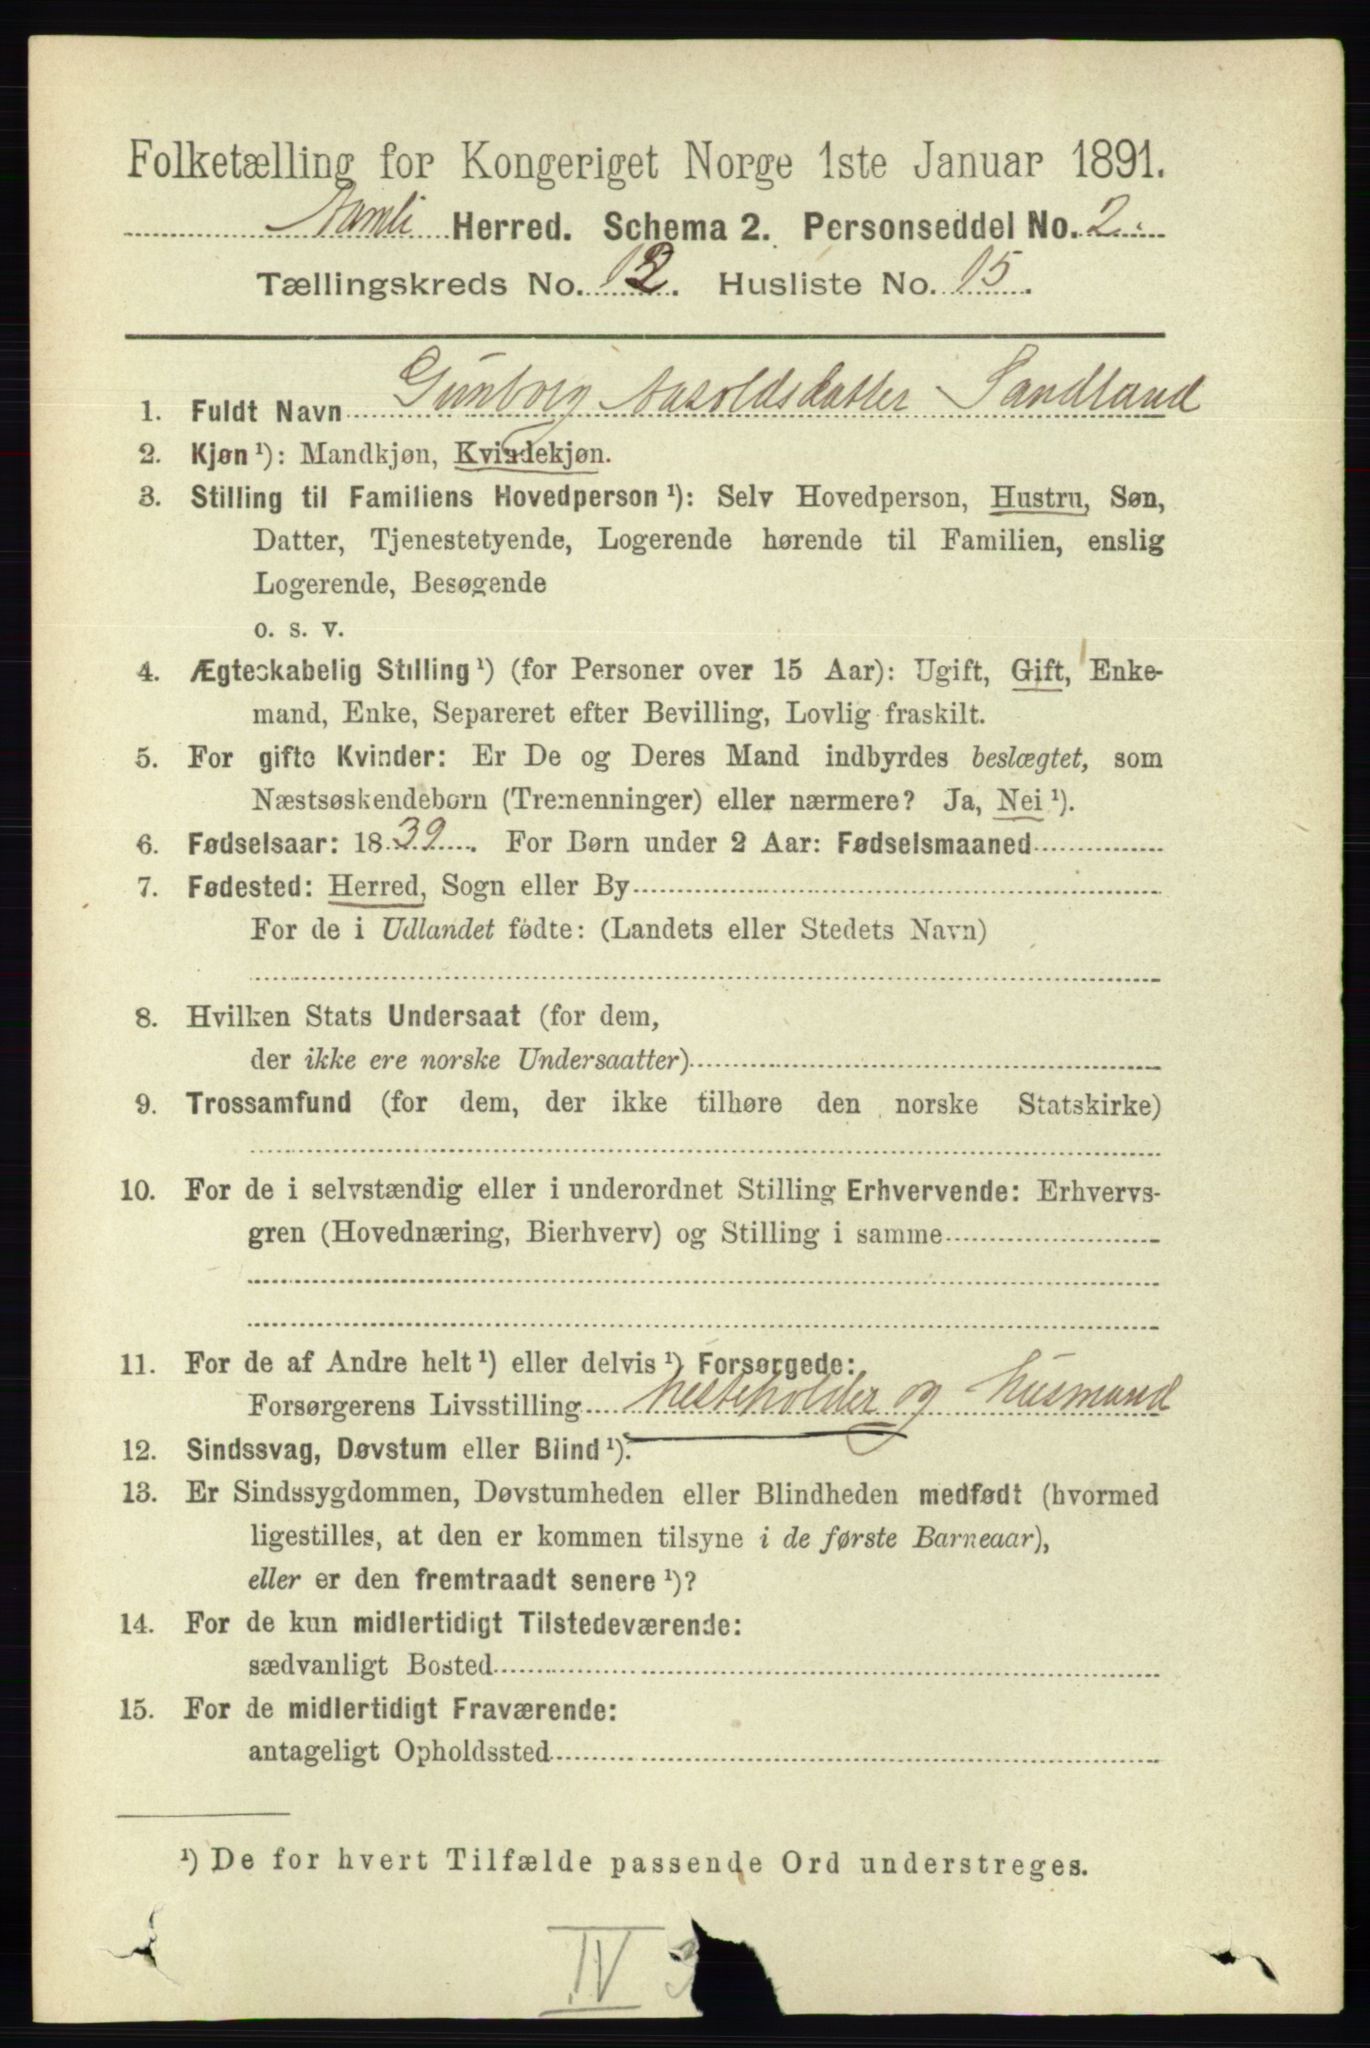 Folketælling for Kongeriget Norge 1ste Januar 1891.
Aamli Herred. Schema 2. Personseddel No. 2
Tællingskreds No. 12. Husliste No. 15.
1. Fuldt Navn Gunborg Aasoldsdatter Sandland
2. Kjøn ¹): Mandkjøn, Kvindekjøn.
3. Stilling til Familiens Hovedperson ¹): Selv Hovedperson, Hustru, Søn,
Datter, Tjenestetyende, Logerende hørende til Familien, enslig
Logerende, Besøgende
o. s. v.
4. Ægteskabelig Stilling ¹) (for Personer over 15 Aar): Ugift, Gift, Enke-
mand, Enke, Separeret efter Bevilling, Lovlig fraskilt.
5. For gifte Kvinder: Er De og Deres Mand indbyrdes beslægtet, som
Næstsøskendebørn (Tremenninger) eller nærmere? Ja, Nei ¹).
6. Fødselsaar: 1839. For Børn under 2 Aar: Fødselsmaaned
7. Fødested: Herred, Sogn eller By
For de i Udlandet fødte: (Landets eller Stedets Navn)
8. Hvilken Stats Undersaat (for dem,
der ikke ere norske Undersaatter)
9. Trossamfund (for dem, der ikke tilhøre den norske Statskirke)
10. For de i selvstændig eller i underordnet Stilling Erhvervende: Erhvervs-
gren (Hovednæring, Bierhverv) og Stilling i samme
11. For de af Andre helt ¹) eller delvis ¹) Forsørgede:
Forsørgerens Livsstilling hesteholder og husmand
12. Sindssvag, Døvstum eller Blind ¹).
13. Er Sindssygdommen, Døvstumheden eller Blindheden medfødt (hvormed
ligestilles, at den er kommen tilsyne i de første Barneaar),
eller er den fremtraadt senere ¹)?
14. For de kun midlertidigt Tilstedeværende:
sædvanligt Bosted
15. For de midlertidigt Fraværende:
antageligt Opholdssted
¹) De for hvert Tilfælde passende Ord understreges.
IV